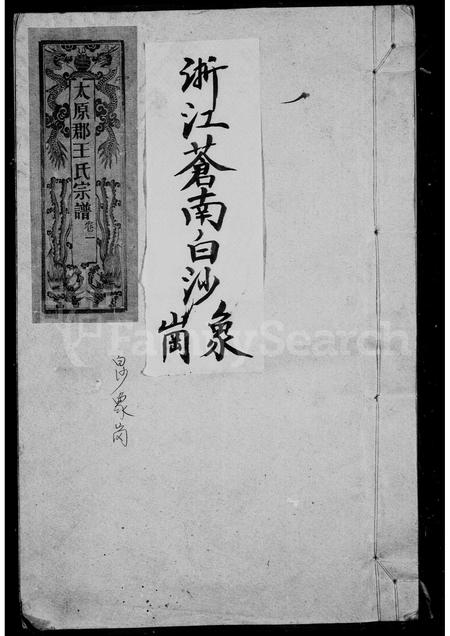 太原郡王氏宗譜 卷一
浙江蒼南白沙
象崗
白沙象岗
FamilySearch